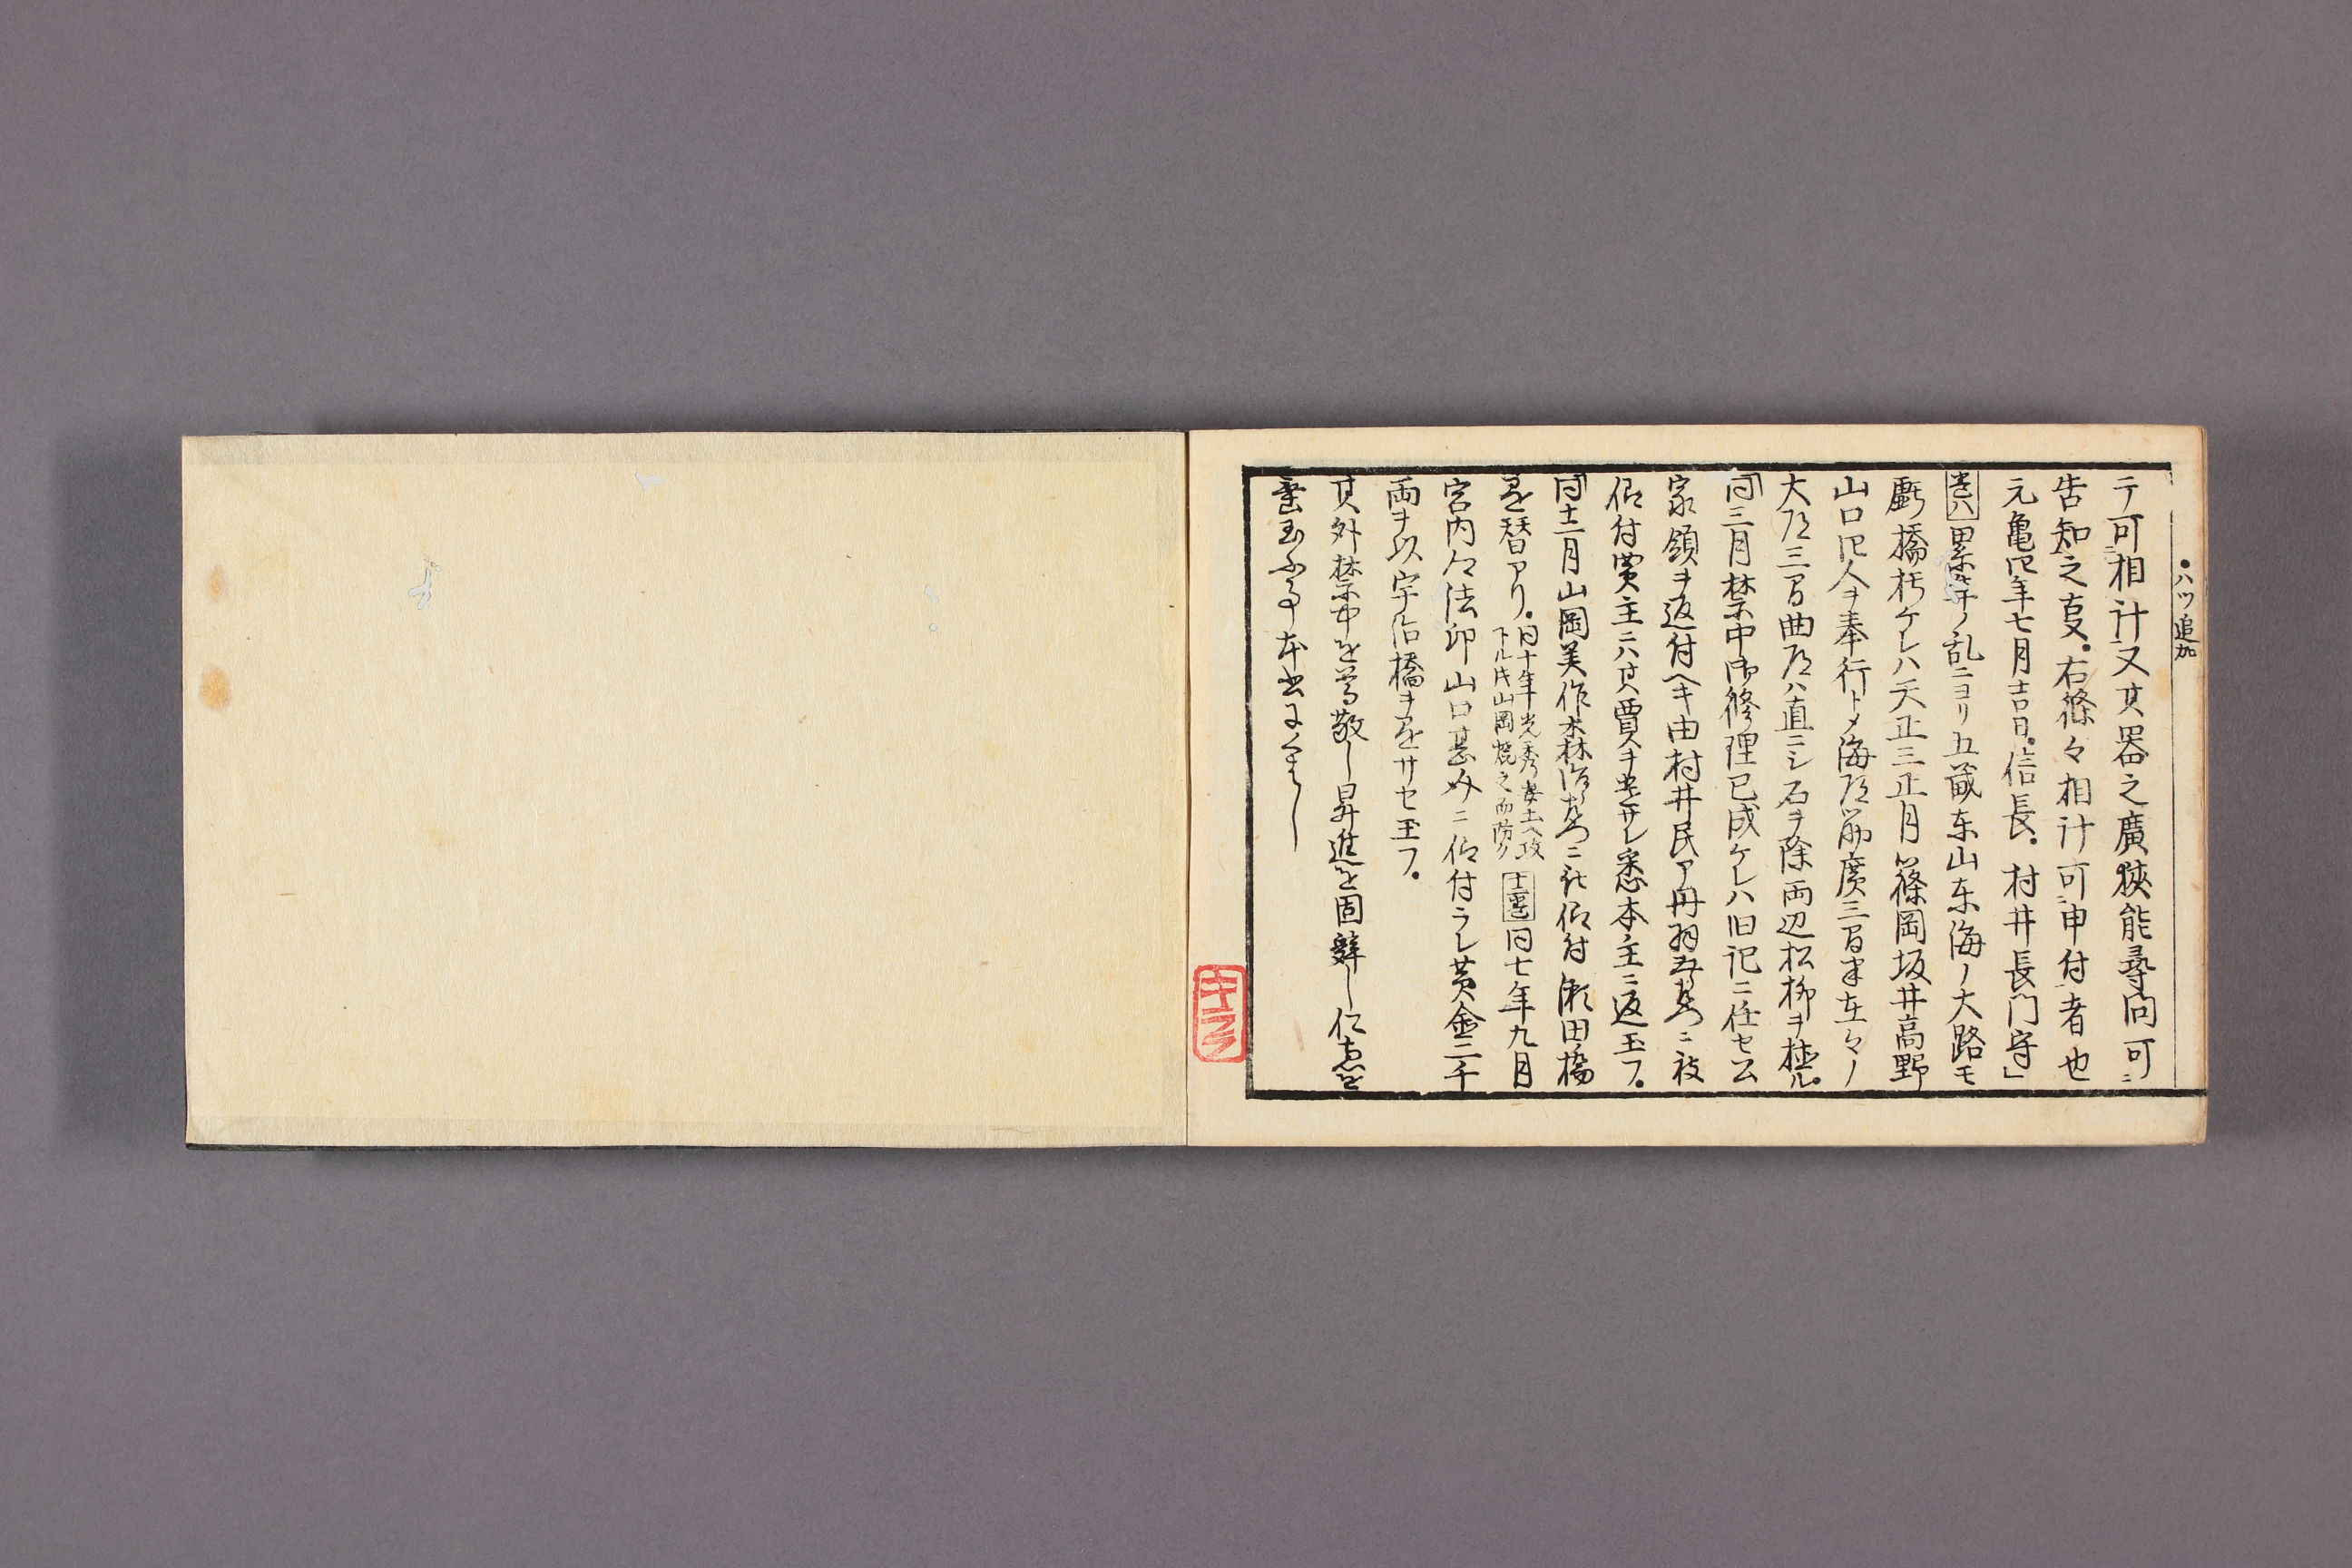 ・ハツ追加
テ可相計又其器之廣狹能尋问可ニ
告知之叓。右條々相計可申付者也
元亀四年七月吉日。信長。村井長門守」
巻八累年ノ乱ニヨリ五畿东山东海ノ大路モ
虧橋朽ケレハ天正三正月篠岡坂井高野
山口四人ヲ奉行トメ海道筋廣三间半在々ノ
大道三间曲道ハ直ニシ石ヲ除両辺松柳ヲ植ル。
同三月禁中御修理已成ケレハ旧記ニ任セ公
家領ヲ返付ヘキ由村井民ア丹羽五郎左ニ被
仰付買主ニハ其賈ヲ玉サレ悉本主ニ返玉フ。
同十二月山岡美作木林次郎左ニ被仰付瀬田橋
ヲ替アリ。
同十年光秀安土ヘ攻
下ル时山岡焼之而防ク
十二巻同七年九月
宮内々法印山口甚介ニ仰付ラレ黄金二千
両ヲ以宇治橋ヲ ササセ玉フ。
其外禁中を尊敬し昇進を固辞し仁恵を
垂玉ふ事本書にくはし